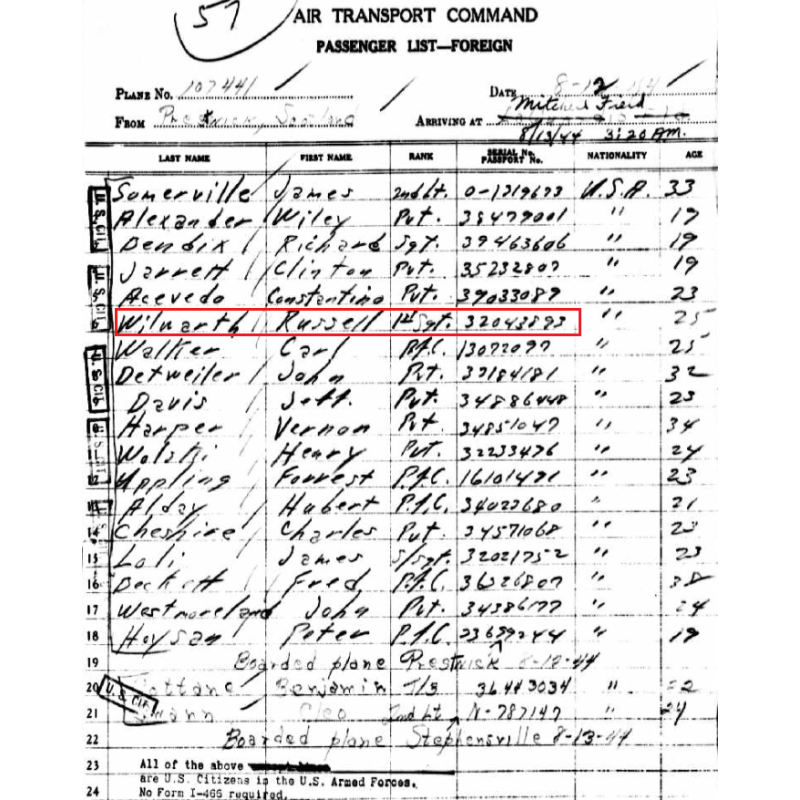 57
AIR TRANSPORT COMMAND
PASSENGER LIST—FOREIGN
PLANE No. 107441 DATE 8-12-44
FROM Prestwick, Scotland ARRIVING AT Mitchel Field
8/13/44 3:20 AM.
LAST NAME FIRST NAME RANK SERIAL No. PASSPORT No. NATIONALITY AGE
Somerville James 2nd Lt. 0-1319673 U.S.A. 33
Alexander Wiley Pvt. 38479001 " 19
Bendix Richard Sgt. 39463606 " 19
Jarrett Clinton Pvt. 35232807 " 19
Acevedo Constantino Pvt. 39033089 " 23
Wilwarth Russell 1st Sgt. 32043893 " 25
Walker Carl P.f.C. 13072097 " 25
Detweiler John Pvt. 33184181 " 32
Davis Jeff. Pvt. 34886448 " 23
Harper Vernon Pvt 34851047 " 34
11 Wolski Henry Pvt. 32233476 " 24
12 Uppling Forrest P.f.C. 16101471 " 23
Alday Hubert P.f.C. 34022680 " 21
14 Cheshire Charles Pvt. 34571068 " 23
15 Loli James S/Sgt. 32021752 " 23
16 Beckett Fred P.f.C. 36326807 " 38
17 Westmoreland John Pvt. 34386177 " 24
18 Hoysan Peter P.f.C. 23659244 " 19
19 Boarded plane Prestwick 8-12-44
20 Benjamin T/g 36443034 " 22
21 Cleo 2nd Lt N-787147 " 24
22 Boarded plane Stephensville 8-13-44
23 All of the above
are U.S. Citizens in the U.S. Armed Forces.
24 No Form I-466 required.
U.S. CIT.
U.S. CIT.
U.S. CIT.
U.S. CIT.